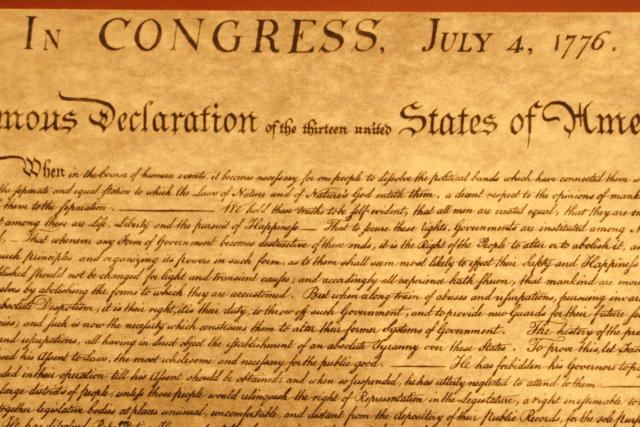 IN CONGRESS, JULY 4, 1776.
mous Declaration of the thirteen united States of Ame
When in the Course of human events, it becomes necessary for one people to dissolve the political bands which have connected them w
the separate and equal station to which the Laws of Nature and of Nature's God entitle them, a decent respect to the opinions of mank
them to the separation. We hold these truths to be self-evident, that all men are created equal, that they are en
among these are Life, Liberty and the pursuit of Happiness. — That to secure these rights, Governments are instituted among M
— That whenever any Form of Government becomes destructive of these ends, it is the Right of the People to alter or to abolish it, an
such principles and organizing its powers in such form, as to them shall seem most likely to effect their Safety and Happiness
blished should not be changed for light and transient causes; and accordingly all experience hath shewn, that mankind are mo
selves by abolishing the forms to which they are accustomed. But when a long train of abuses and usurpations, pursuing invar
absolute Despotism, it is their right, it is their duty, to throw off such Government, and to provide new Guards for their future se
nies; and such is now the necessity which constrains them to alter their former Systems of Government. The history of the pre
and usurpations, all having in direct object the establishment of an absolute Tyranny over these States. To prove this, let Fac
sed his Assent to Laws, the most wholesome and necessary for the public good. He has forbidden his Governors to pa
ded in their operation till his Assent should be obtained; and when so suspended, he has utterly neglected to attend to them.
large districts of people, unless those people would relinquish the right of Representation in the Legislature, a right inestimable to
together legislative bodies at places unusual, uncomfortable, and distant from the depository of their Public Records, for the sole purp